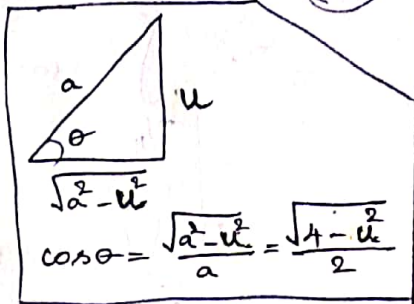 a
u
θ
√a² - u²
cosθ = √a² - u² / a = √4 - u² / 2